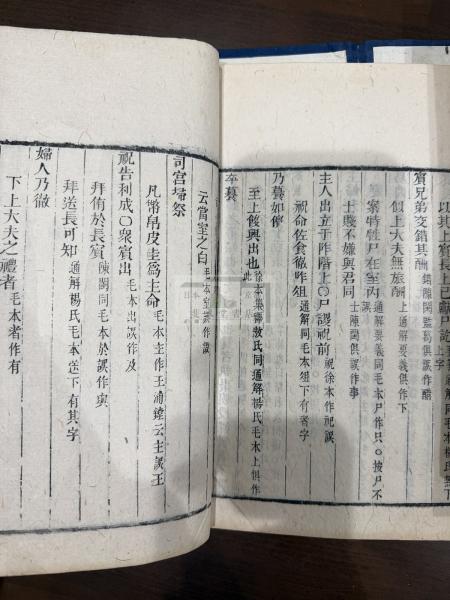 以其上賓長上已獻尸訖
賓兄弟交錯其酬
似上大夫無旅酬 上通解要義俱作下
案特牲尸在室內 通解要義同毛本尸作只〇按尸不誤
士賤不嫌與君同 士陳閩俱誤作事
主人出立于阼階上〇尸謖祝前 祝徐本作祀誤
祝命佐食徹阼俎 通解同毛本俎下有者字
乃養如儐
至上養興出也 徐本集釋敖氏同通解楊氏毛本上俱作此
卒養
云當室之白 毛本室誤作誤
司宮埽祭
凡幣帛皮圭為主命 毛本主作王浦鏜云主誤王
祝告利成〇眾賓出 毛本出誤作及
拜侑於長賓 陳閩同毛本於誤作與
拜送長可知 通解楊氏毛本送下有其字
婦人乃徹
下上大夫之禮者 毛本者作有